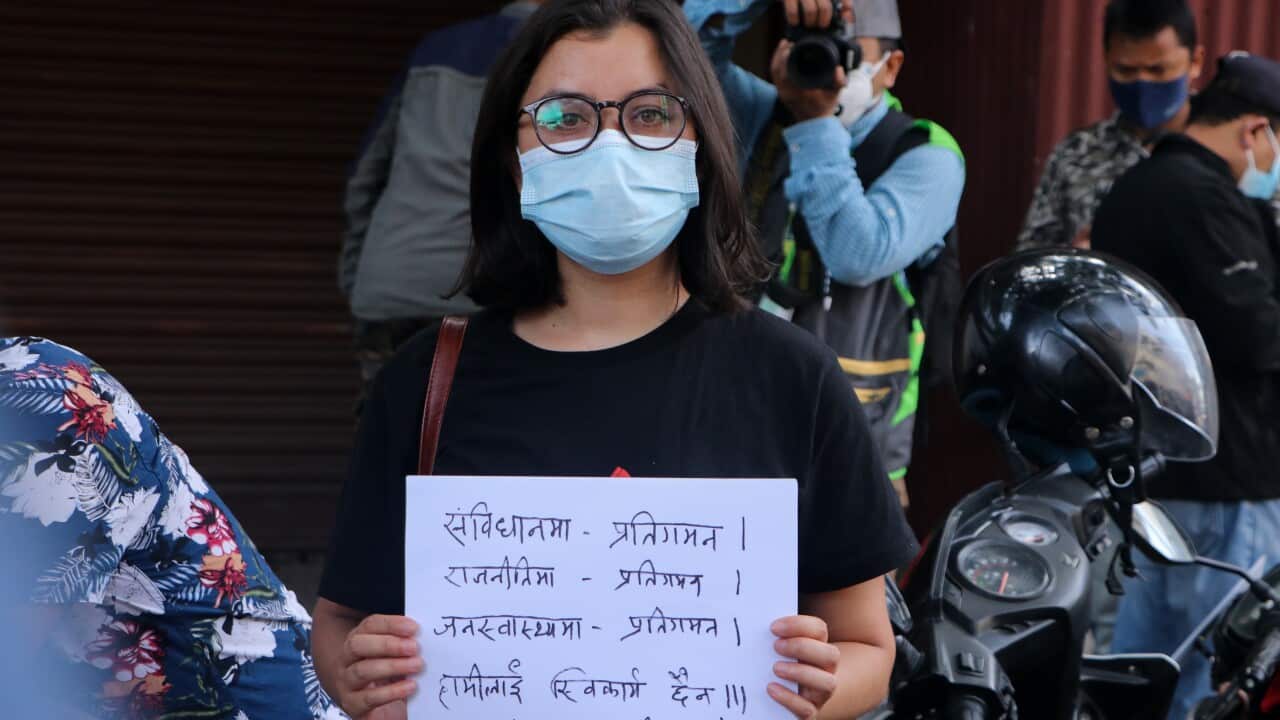 संविधानमा - प्रतिगमन ।
राजनीतिमा - प्रतिगमन ।
जनस्वास्थ्यमा - प्रतिगमन ।
हामीलाई स्विकार्य छैन ।।।